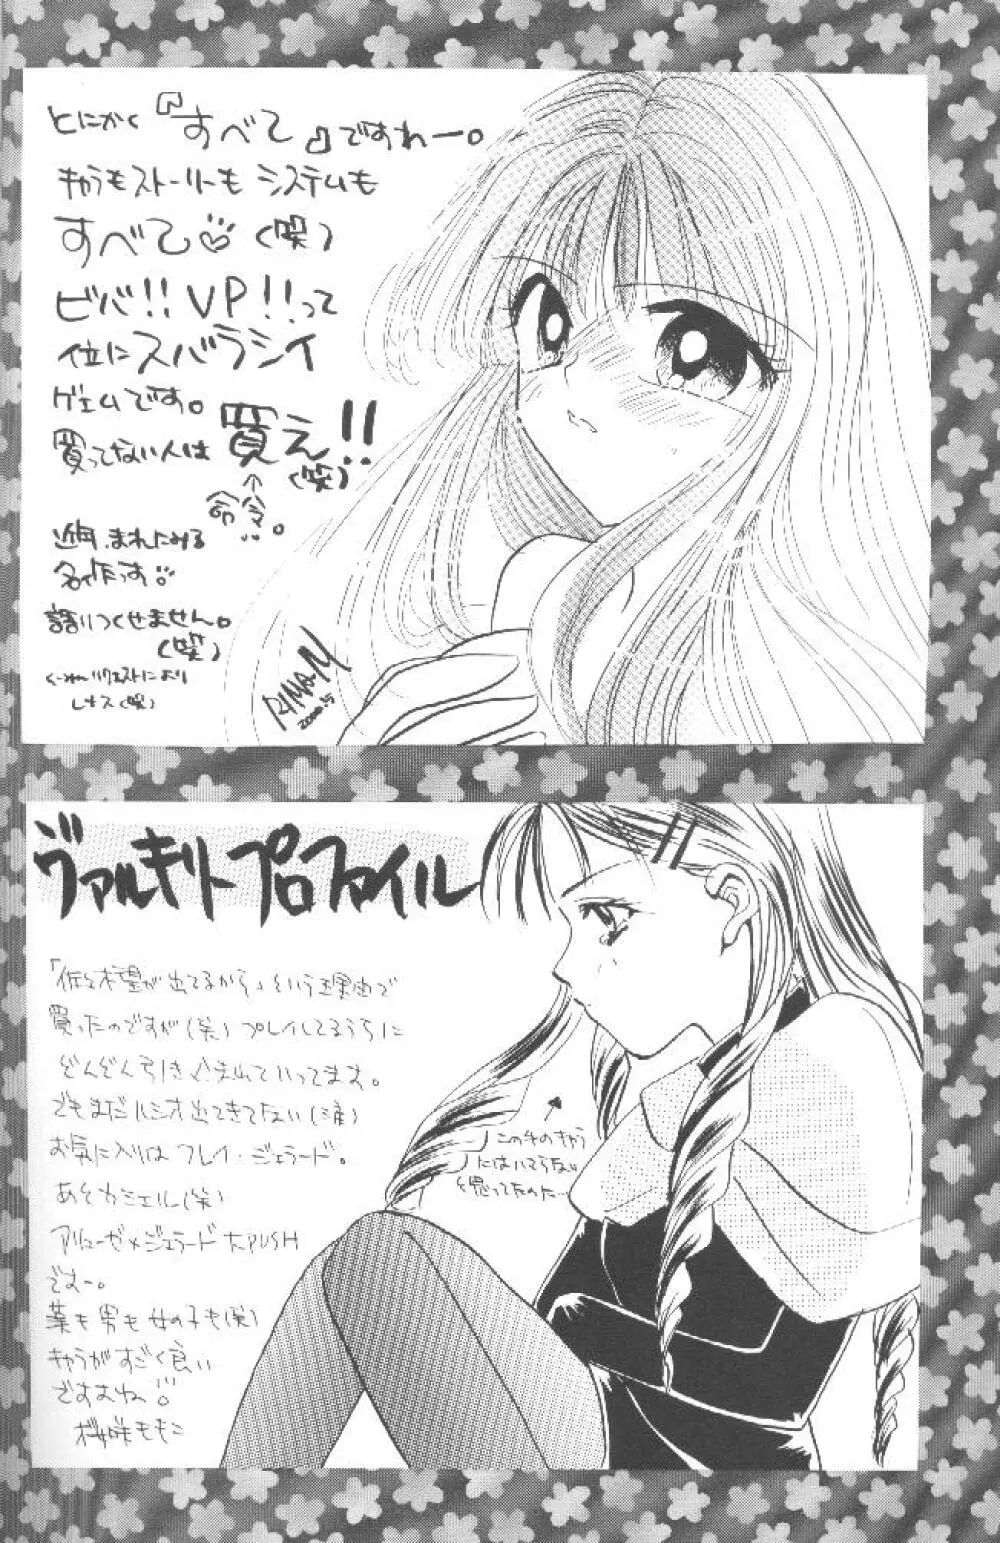 とにかく『すべて』ですねー。
キャラもストーリーも システムも
すべて♡(笑)
ビバ!! VP!!って
位にスバラシイ
ゲームです。
買ってない人は 買え!!(笑)
↑
命令。
近年まれにみる
名作っす
語りつくせません。
(笑)
レナス(笑)
RIMA・M
2000.
ヴァルキリープロファイル
「佐々木望が出てるから」という理由で
買ったのですが(笑) プレイしてるうちに
どんどん引き込まれていってます。
でもまだルシオ出てきてない(涙)
お気に入りは フレイ・ジェラード。
あとカシェル(笑)
アリューゼ×ジェラード大PUSH
ですー。
男も女の子も(笑)
キャラがすごく良い
ですよね!
桜咲ももこ
この手のキャラ
にはいてらない
と思ってたのた…